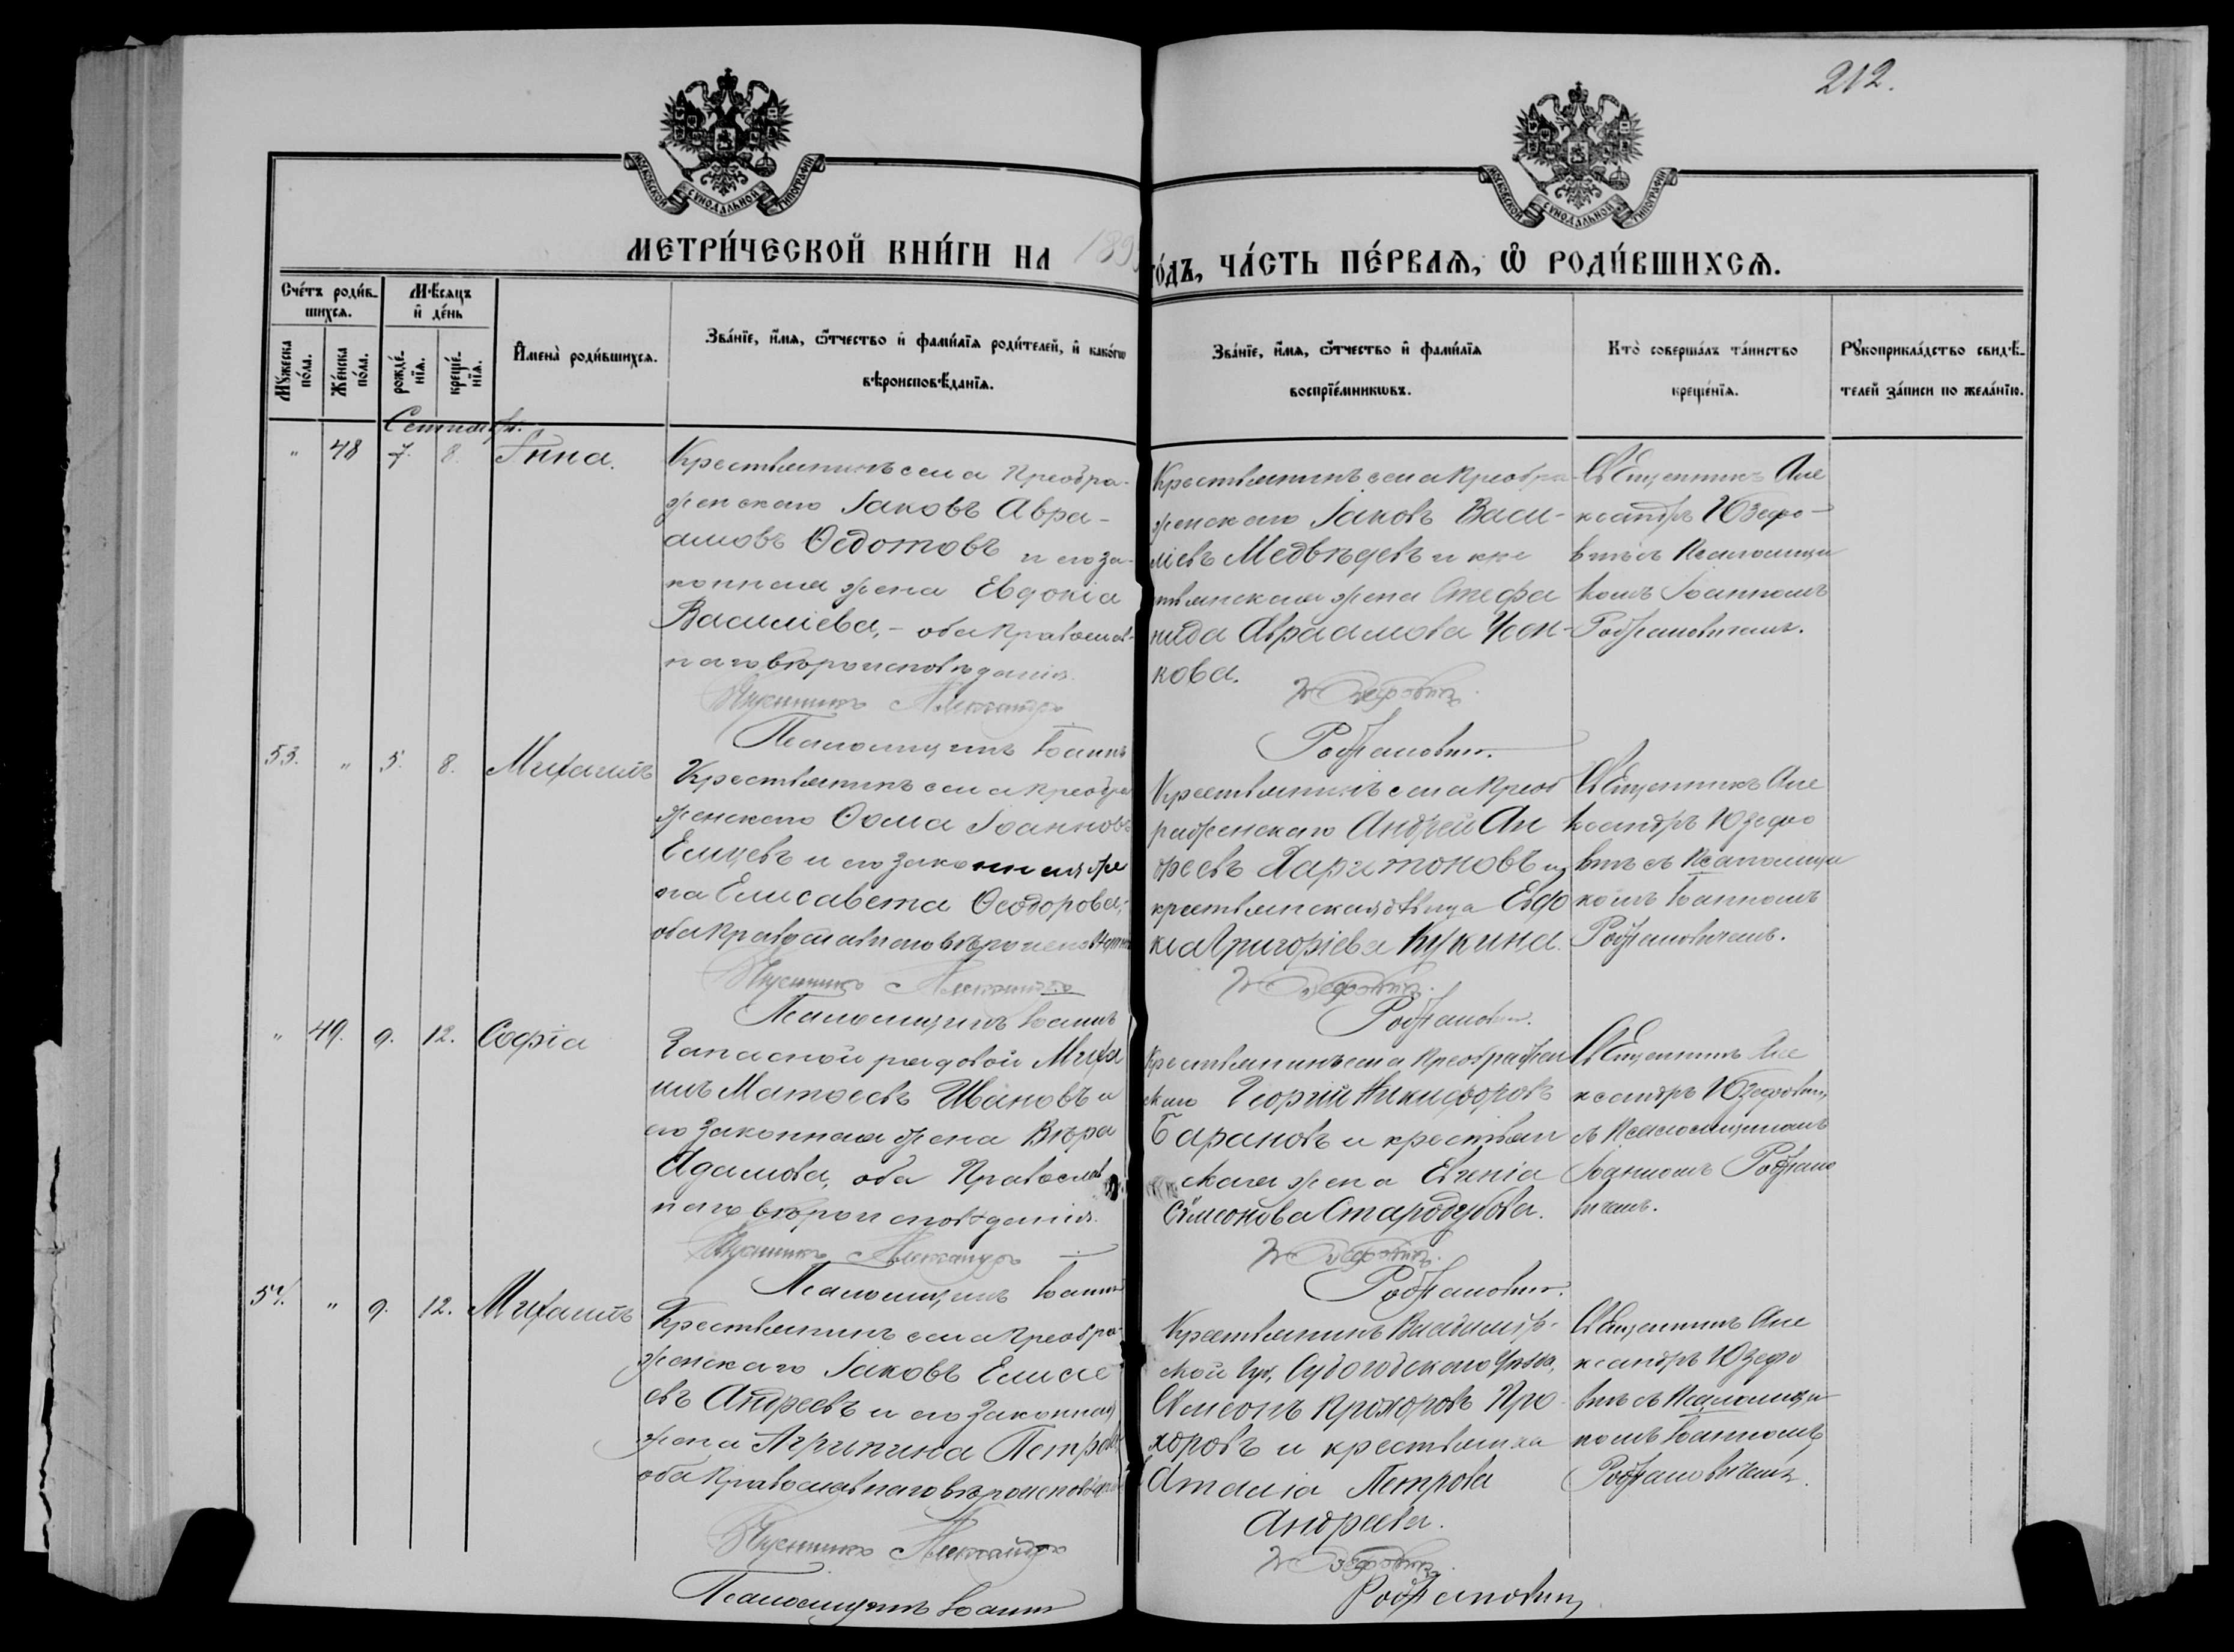 212.
МОСКОВСКОЙ СѴНОДАЛЬНОЙ ТИПОГРАФІИ
МОСКОВСКОЙ СѴНОДАЛЬНОЙ ТИПОГРАФІИ
МЕТРИ́ЧЕСКОЙ КНИ́ГИ НА 189
го́дъ, ЧА́СТЬ ПЕ́РВАѦ, Ѡ҆ РОДИ́ВШИХСѦ.
Сче́тъ роди́в-
шихсѧ.
Мꙋ́жеска
по́ла.
Же́нска
по́ла.
Мѣ́сѧцъ
и҆ де́нь
рожде́-
нїѧ.
креще́-
нїѧ.
И҆мена̀ роди́вшихсѧ.
Зва́нїе, и҆́мѧ, ѻ҆́тчество и҆ фамі́лїѧ роди́телей, и҆ како́гѡ
вѣроисповѣ́данїѧ.
Зва́нїе, и҆́мѧ, ѻ҆́тчество и҆ фамі́лїѧ
воспрїе́мникѡвъ.
Кто̀ соверша́лъ та́инство
креще́нїѧ.
Рꙋкоприкла́дство свидѣ́-
телей за́писи по жела́нїю.
Сентябрь.
" 48 7. 8. Анна.
Крестьянинъ села Преобра-
женскаго Іаковъ Авра-
амовъ Ѳедотовъ и его за-
конная жена Евдокіа
Василіева, - оба Православ-
наго вѣроисповѣданія.
Священникъ Александръ
Псаломщикъ Іоаннъ
Крестьянинъ села Преобра-
женскаго Іаковъ Васи-
ліевъ Медвѣдевъ и кре
стьянская жена Стефа
нида Авраамова Чен-
кова.
Юзефовичъ.
Родзановичъ.
Священникъ Але
ксандръ Юзефо-
вичъ съ Псаломщи
комъ Іоанномъ
Родзановичемъ.
53. " 5. 8. Михаилъ
Крестьянинъ села Преобра
женскаго Ѳома Іоанновъ
Елцевъ и его законная же
на Елисавета Ѳеодорова,
оба Православнаго вѣроисповѣданія
Священникъ Александръ
Псаломщикъ Іоаннъ
Крестьянинъ села Преоб
раженскаго Андрей Ан
дреевъ Харитоновъ и
крестьянская дѣвица Евдо
кіа Григоріева Кукина.
Юзефовичъ.
Родзановичъ.
Священникъ Але
ксандръ Юзефо
вичъ съ Псаломщи
комъ Іоанномъ
Родзановичемъ.
" 49. 9. 12. Софіа
Запасной рядовой Миха
илъ Матѳеевъ Ивановъ и
его законная жена Вѣра
Адамова, оба Православ
наго вѣроисповѣданія.
Священникъ Александръ
Псаломщикъ Іоаннъ
Крестьянинъ села Преображен
скаго Георгій Никифоровъ
Барановъ и крестьян
ская жена Евгеніа
Сѵмеонова Стародубова.
Юзефовичъ.
Родзановичъ.
Священникъ Але
ксандръ Юзефович
съ Псаломщикомъ
Іоанномъ Родзано
вичемъ.
54. " 9. 12. Михаилъ
Крестьянинъ села Преобра-
женскаго Іаковъ Елисе
евъ Андреевъ и его законная
жена Агрипина Петрова
оба Православнаго вѣроисповѣданія
Священникъ Александръ
Псаломщикъ Іоаннъ
Крестьянинъ Владимір-
ской губ. Судогодскаго уѣзда,
Сѵмеонъ Прохоровъ Про-
хоровъ и крестьянка
Аталіа Петрова
Андреева.
Юзефовичъ.
Родзановичъ
Священникъ Але
ксандръ Юзефо
вичъ съ Псаломщи
комъ Іоанномъ
Родзановичемъ.